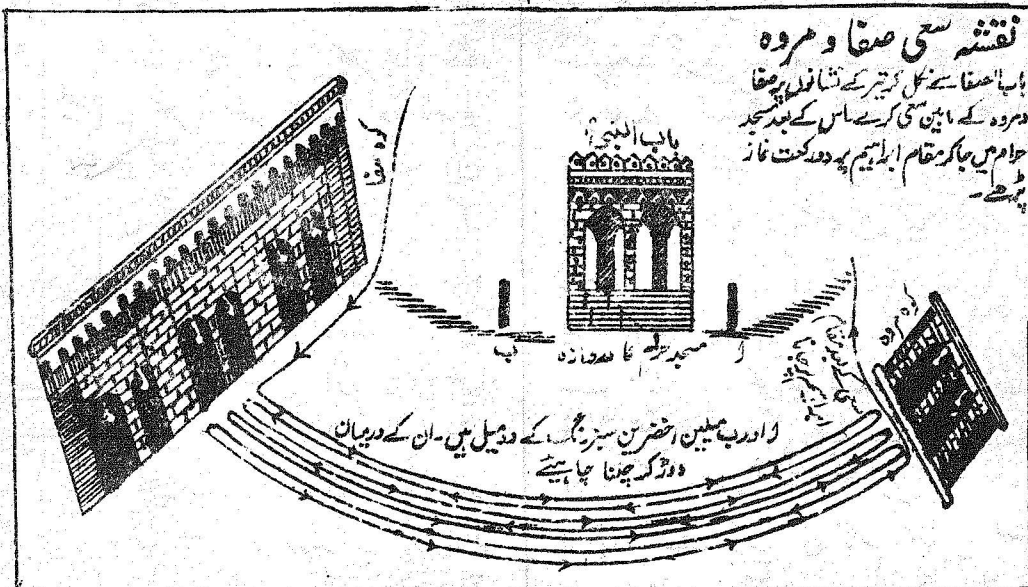 نقشہ سعی صفا و مروہ
باب الصفا سے نکل کر تیر کے نشانوں پر صفا
و مروہ کے مابین سعی کرے۔ اس کے بعد مسجد
حرام میں جاکر مقام ابراہیم پر دو رکعت نماز
پڑھے۔
کوہ صفا
باب النبیؐ
ب
مسجد حرام کا دروازہ
أ
کوہ مروہ
أ اور ب میلین اخضرین سبز رنگ کے دو میل ہیں۔ ان کے درمیان
دوڑ کر چلنا چاہیئے